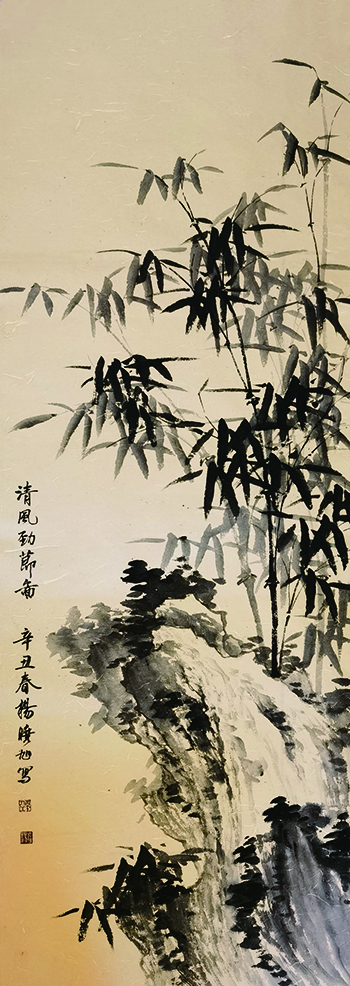 清風勁節圖 辛丑春楊曉旭寫